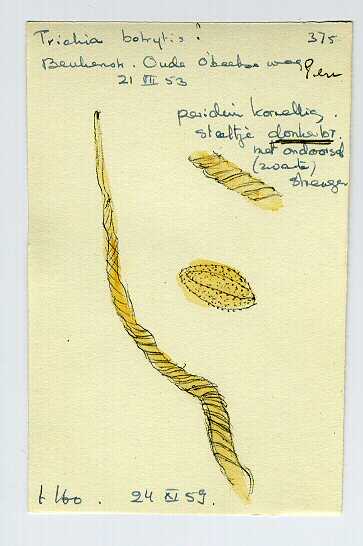 Trichia botrytis? 375
Beukenstr. Oude
21 VII 53
peridium korrelig.
steeltje donkerbr.
met
(zwarte)
strengen
24 XI 59.